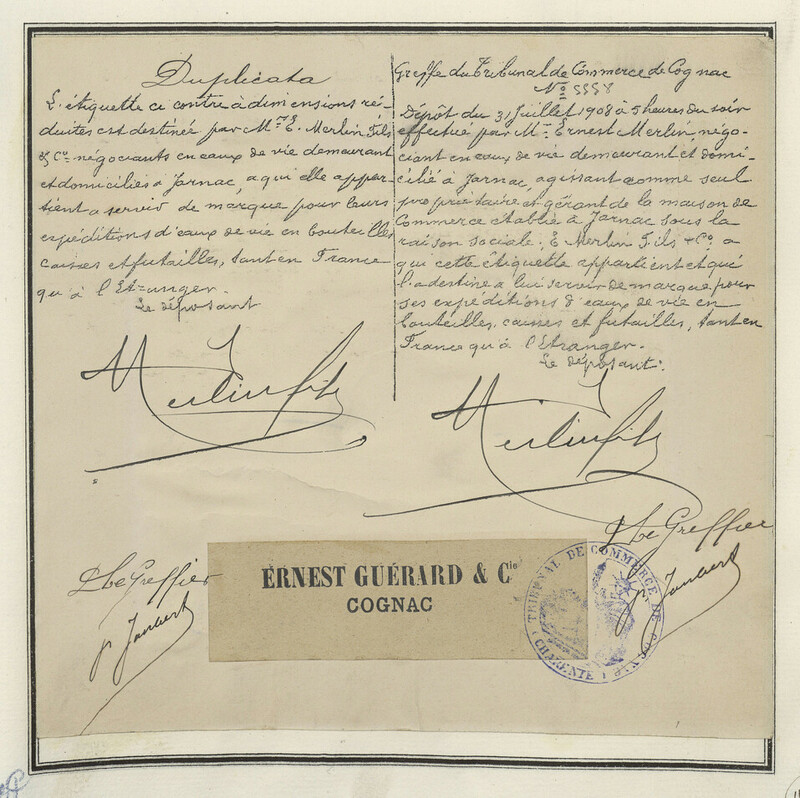 Duplicata
L'étiquette ci contre à dimensions ré-
duites est destinée par Mrs E. Merlin Fils
& Co négociants en eaux de vie demeurant
et domiciliés à Jarnac, a qui elle appar-
tient a servir de marque pour leurs
expéditions d'eaux de vie en bouteilles
caisses et futailles, tant en France
qu'à l'Etranger.
Le déposant
Merlin fils
Greffe du Tribunal de Commerce de Cognac
No 5558
Dépôt du 31 Juillet 1908 à 5 heures du soir
effectué par Mr Ernest Merlin, négo-
ciant en eaux de vie demeurant et domi-
cilié à Jarnac, agissant comme seul
propriétaire et gérant de la maison de
Commerce établie à Jarnac sous la
raison sociale: E Merlin Fils & Co a
qui cette étiquette appartient et qui
l'a destine a lui servir de marque pour
ses expéditions d'eaux de vie en
bouteilles, caisses et futailles, tant en
France qu'à l'Etranger.
Le déposant:
Merlin fils
Le Greffier
Le Greffier
ERNEST GUÉRARD & Cie
COGNAC
TRIBUNAL DE COMMERCE DE COGNAC
(CHARENTE)